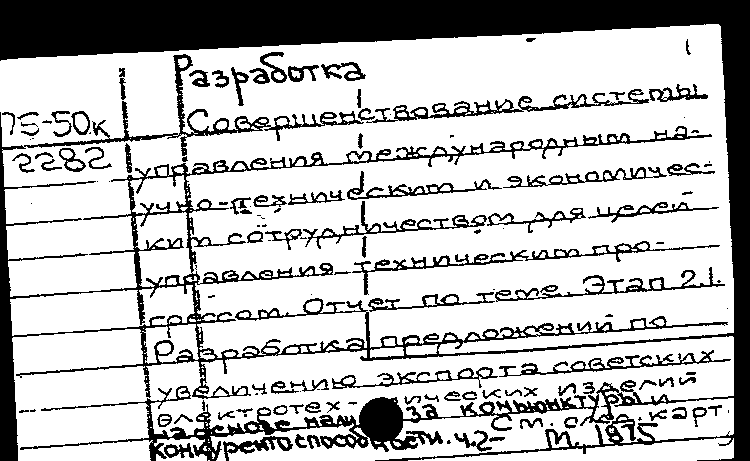 Разработка
75-50к
Совершенствование системы
2282
управления международным на-
учно-техническим и экономичес-
ким сотрудничеством для целей
управления техническим про-
грессом. Отчет по теме. Этап 2.1.
Разработка предложений по
увеличению экспорта советских
электротех- нических изделий
на основе за конъюнктуры и
См. след. карт.
конкурентоспособности. ч.2- М., 1975